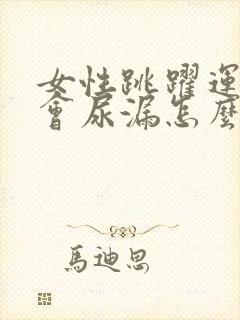 女性跳躍運
會尿漏怎麼
馬迪思